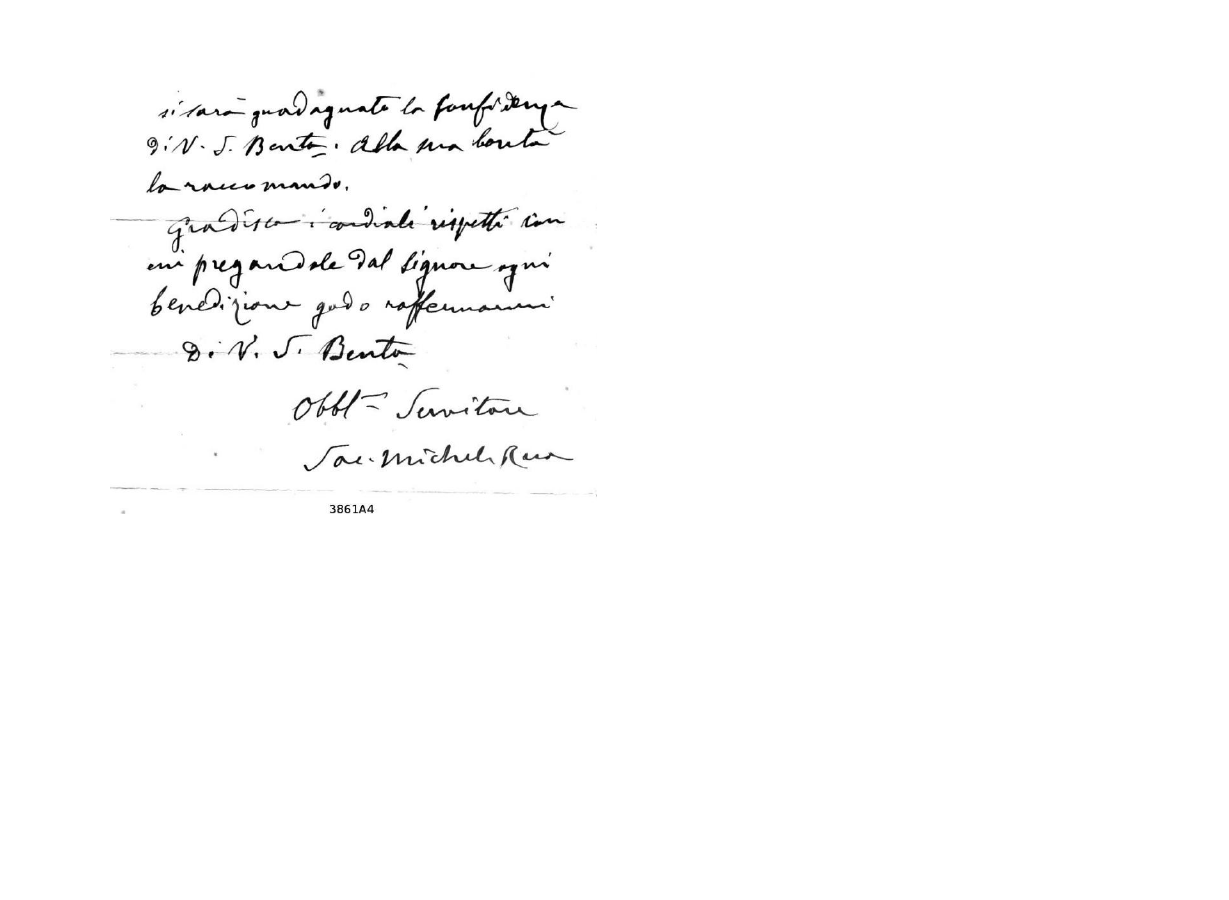 si sarà guadagnata la confidenza
di V. S. Benta. Alla sua bontà
la raccomando.
Gradisca i cordiali rispetti con
cui pregandole dal Signore ogni
benedizione godo raffermarmi
Di V. S. Benta
Obbl Servitore
Sac. Michele Rua
3861A4